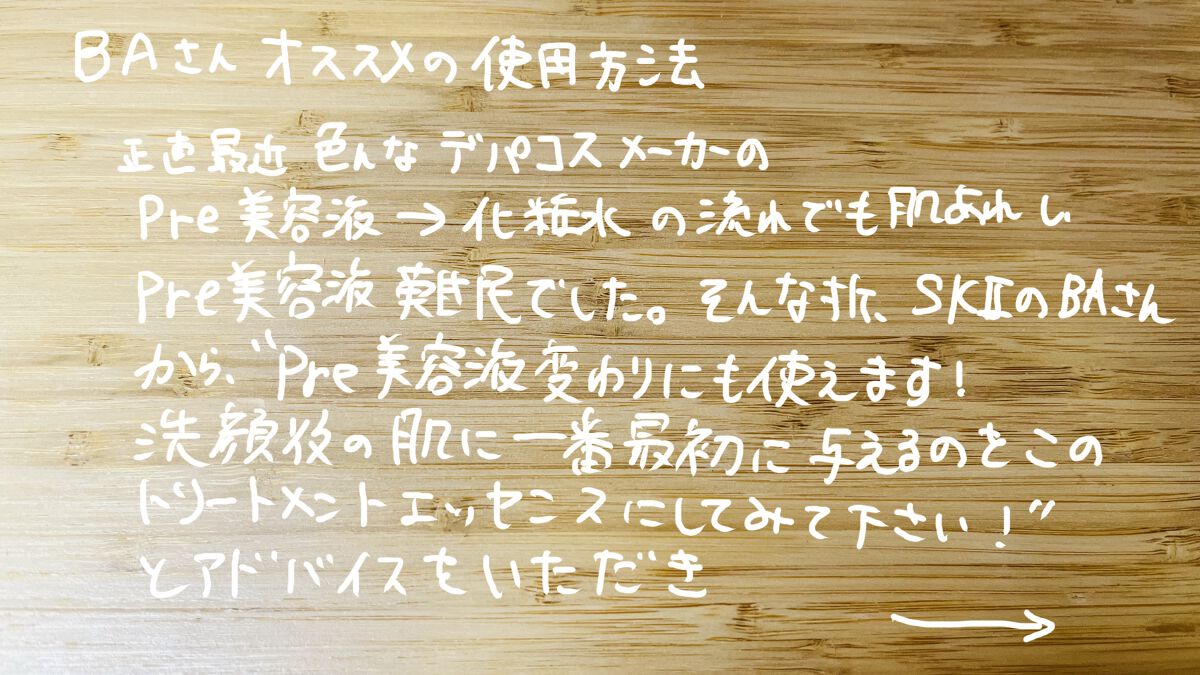 BAさんオススメの使用方法
正直最近色んなデパコスメーカーの
Pre美容液→化粧水の流れでも肌あれし
Pre美容液難民でした。そんな折、SKⅡのBAさん
から、"Pre美容液変わりにも使えます!
洗顔後の肌に一番最初に与えるのをこの
トリートメントエッセンスにしてみて下さい!"
とアドバイスをいただき
→